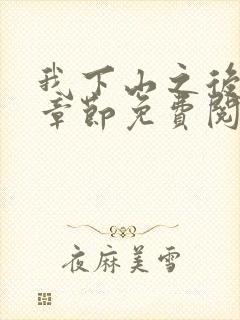 我下山之後
章節免費閱
夜麻美雪